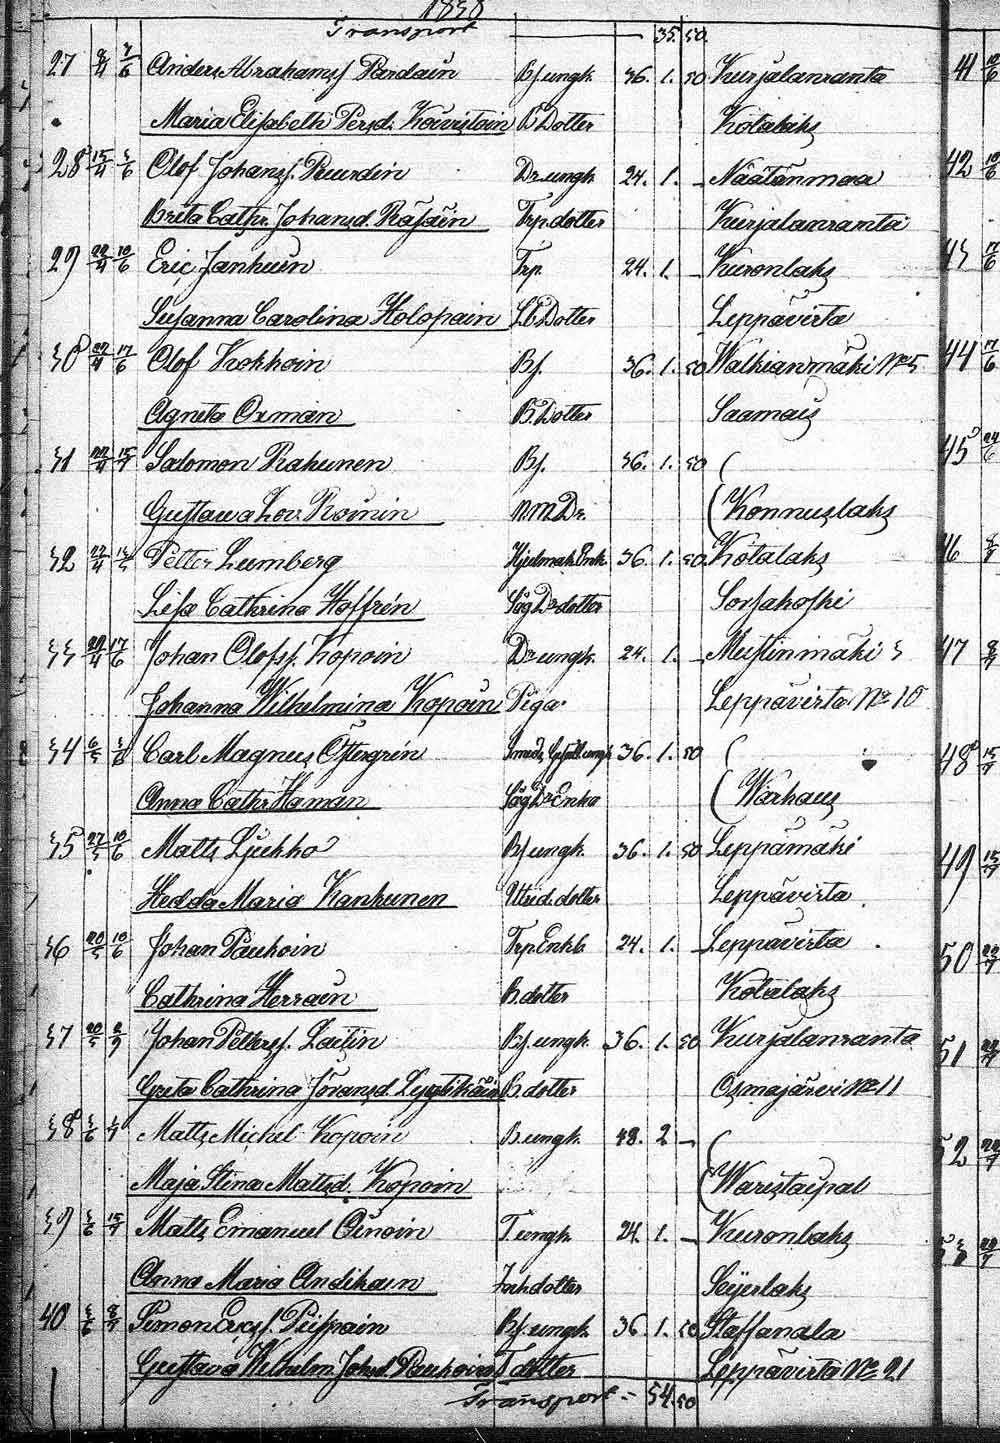 1838
Transport — 35. 50.
27 9/4 7/6 Anders Abrahamss. Pardain Bs. ungk. 36. 1. 50 Kurjalanranta
Maria Elisabeth Persd. Koivistoin B. Dotter Kotalaks
28 15/4 3/6 Olof Johanss. Puurdin Dr. ungk. 24. 1. — Näätänmaa
Brita Cathr. Johansd. Räsäin Trp. dotter Kurjalanranta
29 22/4 10/6 Eric Janhuin Trp. 24. 1. — Kuronlaks
Susanna Carolina Holopain Dotter Leppävirta
30 22/4 17/6 Olof Kokkoin Bs. 36. 1. 50 Walkianmäki No 5
Agneta Oxman B. Dotter Saamais
31 22/4 15/7 Salomon Rahunen Bs. 36. 1. 50
Gustawa Lov. Roinin Konnuslaks
32 22/4 Petter Lumberg Enk. 36. 1. 50. Kotalaks
Lisa Cathrina Hoffrén Såg Dr dotter Sorsakoski
33 29/4 17/6 Johan Olofss. Kopoin Dr. ungk. 24. 1. — Mustinmäki 3
Johanna Wilhelmina Kopoin Piga Leppävirta No 10
34 6/5 3/6 Carl Magnus Östergrén Smeds Gesäll ungk 36. 1. 50
Anna Cathr. Haman Såg Dr Enka Warkaus
35 27/5 10/6 Matts Ljukko Bs. ungk. 36. 1. 50 Leppämäki
Hedda Maria Kankunen dotter Leppävirta
36 20/5 10/6 Johan Paukoin Trp. Enkl. 24. 1. — Leppävirta
Cathrina Herrain B. dotter Kotalaks
37 20/5 2/9 Johan Petterss. Laitin Bs. ungk. 36. 1. 50 Kurjalanranta
Greta Cathrina Göransd. B. dotter Osmajärvi No 11
38 3/6 1/7 Matts Michel Kopoin B. ungk. 48. 2 —
Maja Stina Mattsd. Kopoin Waristaipal
39 3/6 15/7 Matts Emanuel Oinoin T. ungk. 24. 1. — Kuronlaks
Anna Maria Andikain dotter Seijerlaks
40 3/6 8/7 Simon Ericss. Puspain Bs. ungk. 36. 1. 50 Staffanala
Gustava Wilhelm. Johsd. Paukoin T. dotter Leppävirta No 21
Transport — 54. 50
41 10/6
42 10/6
43 17/6
44 17/6
45 24/6
46 8/7
47 8/7
48 15/7
49 15/7
50 22/7
51 22/7
52 22/7
53 22/7